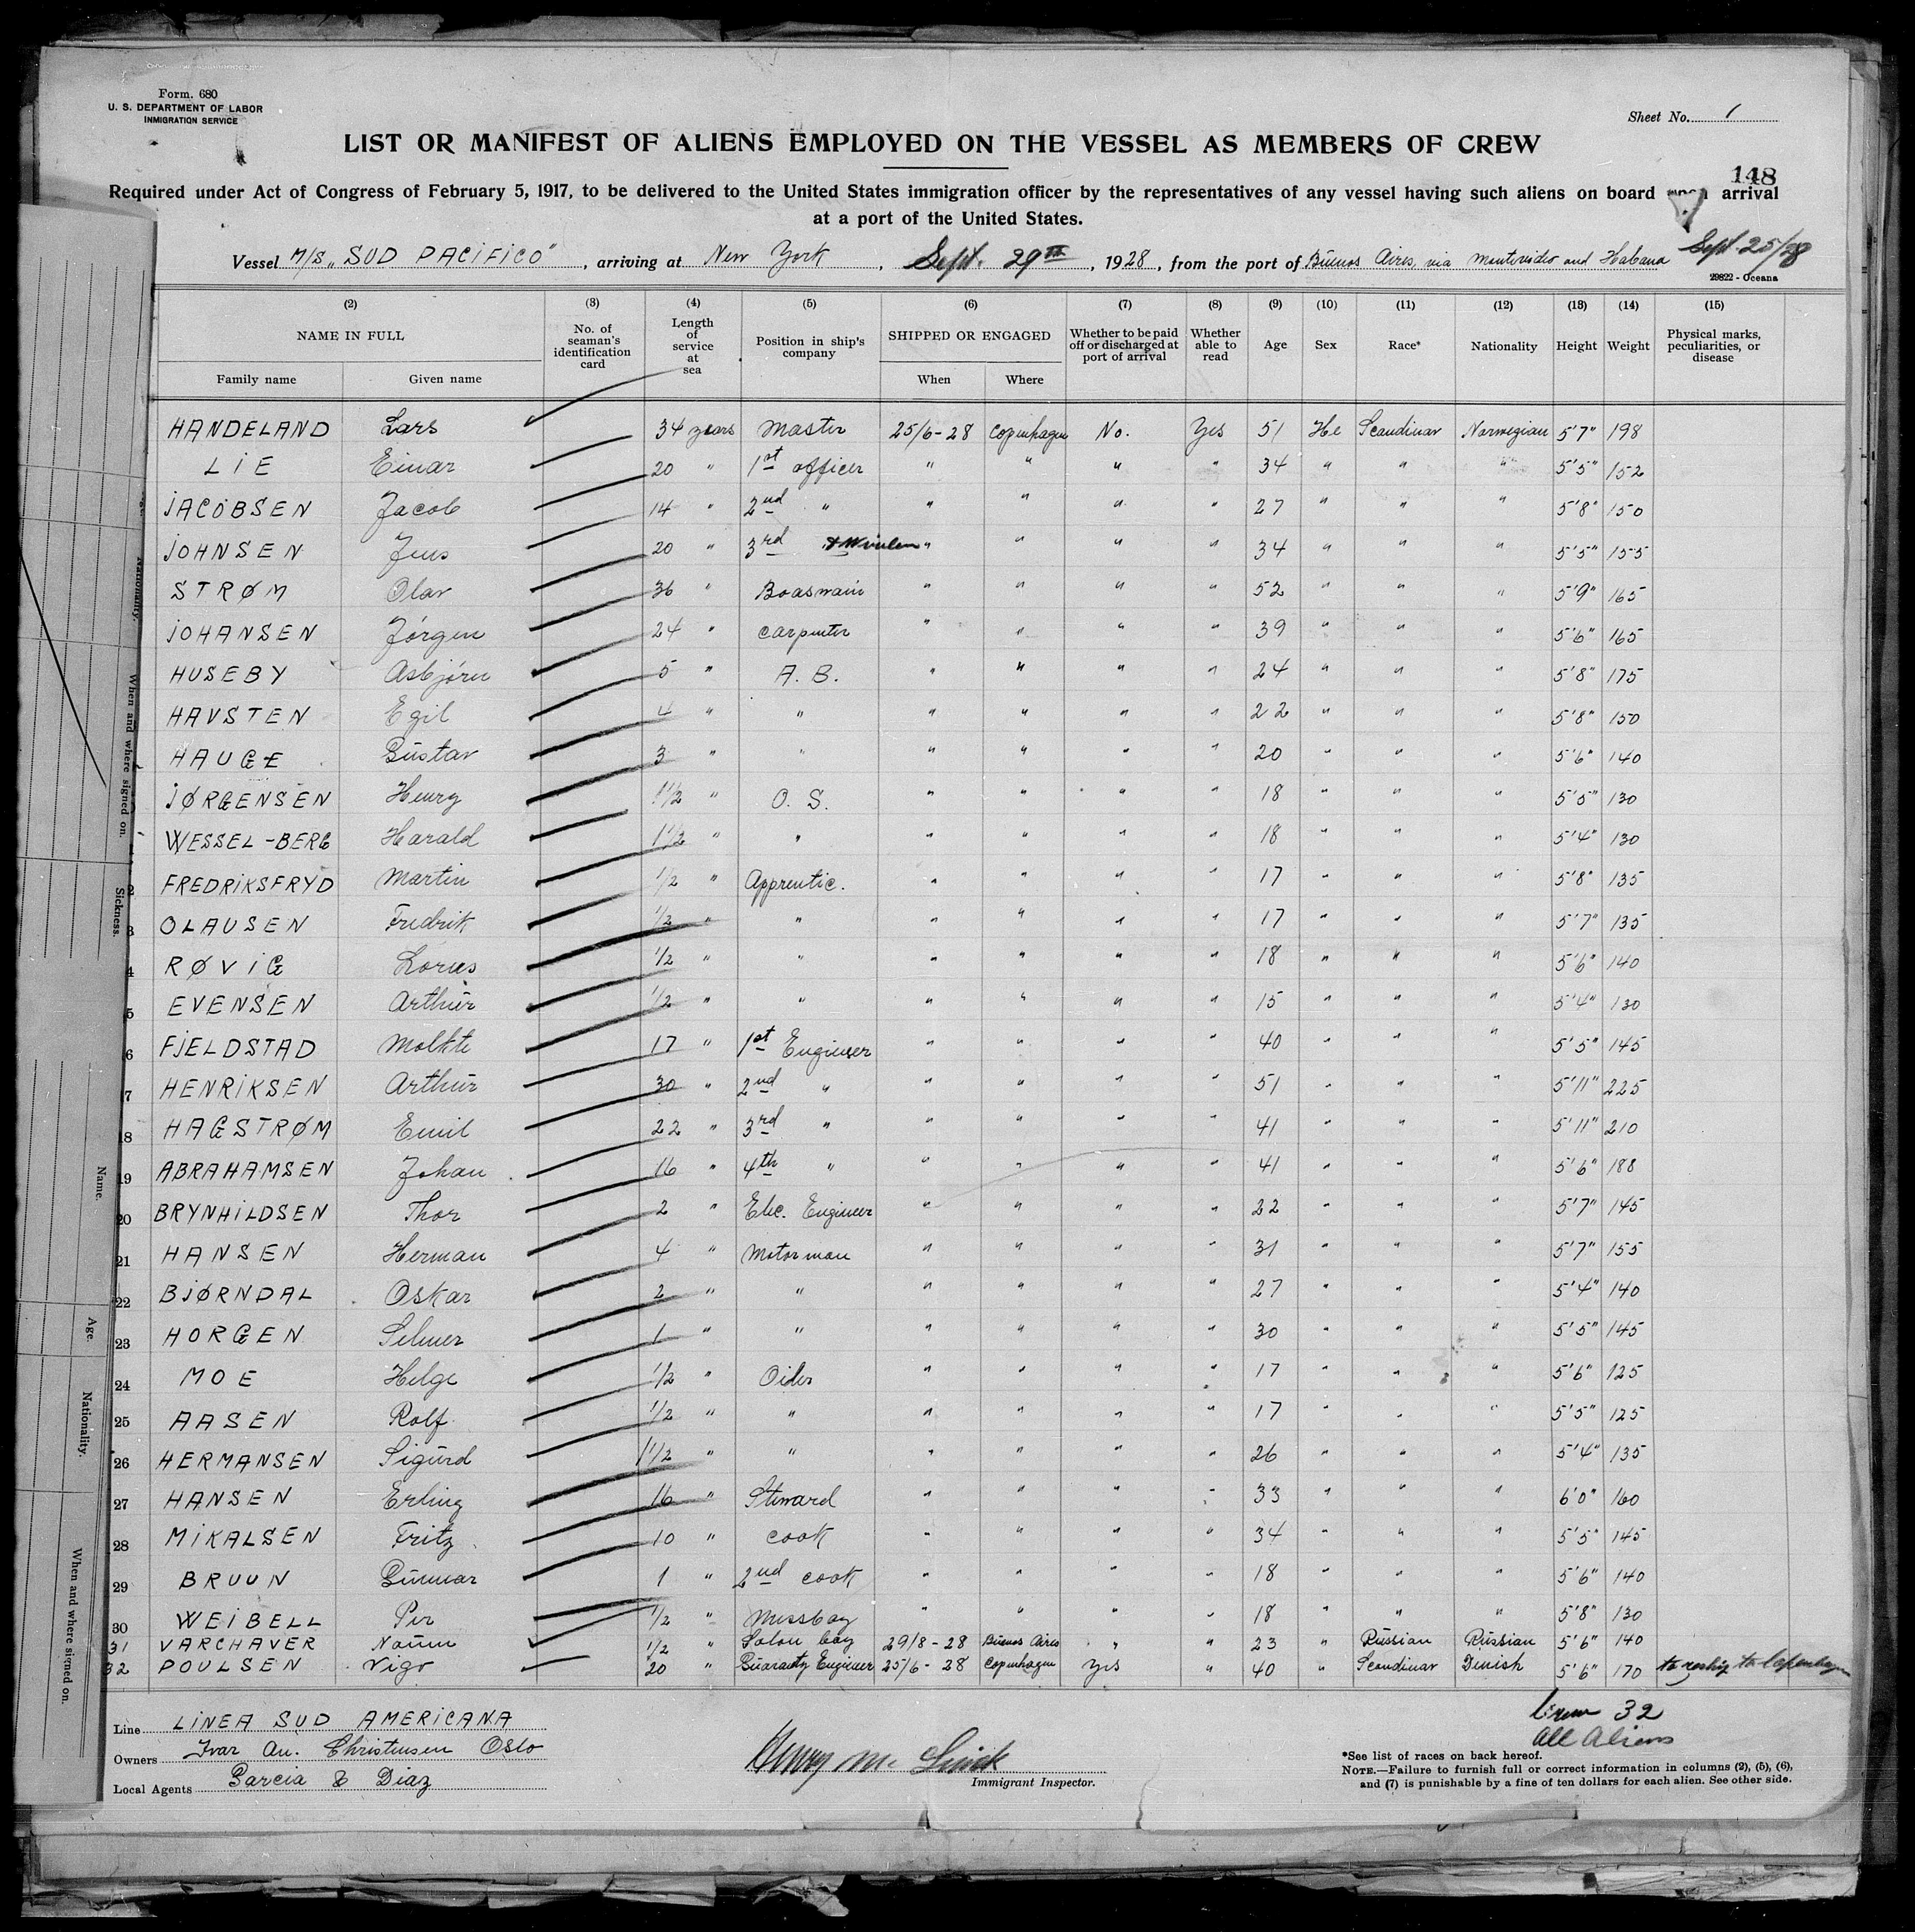 Form. 680
U. S. DEPARTMENT OF LABOR
INMIGRATION SERVICE
Sheet No. 1
LIST OR MANIFEST OF ALIENS EMPLOYED ON THE VESSEL AS MEMBERS OF CREW
148
Required under Act of Congress of February 5, 1917, to be delivered to the United States immigration officer by the representatives of any vessel having such aliens on board upon arrival
at a port of the United States.
Vessel M/S „SUD PACIFICO", arriving at New York, Sept. 29th, 1928, from the port of Buenos Aires, via Montevideo and Habana Sept. 25/28
29822 - Oceana
(2) (3) (4) (5) (6) (7) (8) (9) (10) (11) (12) (13) (14) (15)
NAME IN FULL No. of seaman's identification card Length of service at sea Position in ship's company SHIPPED OR ENGAGED Whether to be paid off or discharged at port of arrival Whether able to read Age Sex Race* Nationality Height Weight Physical marks, peculiarities, or disease
Family name Given name When Where
HANDELAND Lars 34 years Master 25/6-28 Copenhagen No. Yes 51 He Scandinav Norwegian 5'7" 198
LIE Einar 20 " 1st officer " " " " 34 " " " 5'5" 152
JACOBSEN Jacob 14 " 2nd " " " " " 27 " " " 5'8" 150
JOHNSEN Jens 20 " 3rd " " " " 34 " " " 5'5" 155
STRØM Olav 36 " Boasmain " " " " 52 " " " 5'9" 165
JOHANSEN Jørgen 24 " carpenter " " " " 39 " " " 5'6" 165
HUSEBY Asbjørn 5 " A. B. " " " " 24 " " " 5'8" 175
HAVSTEN Egil 4 " " " " " " 22 " " " 5'8" 150
HAUGE Gustav 3 " " " " " " 20 " " " 5'6" 140
JØRGENSEN Henry 1 1/2 " O. S. " " " " 18 " " " 5'5" 130
WESSEL-BERG Harald 1 1/2 " " " " " " 18 " " " 5'4" 130
2 FREDRIKSFRYD Martin 1/2 " Apprentic. " " " " 17 " " " 5'8" 135
3 OLAUSEN Fredrik 1/2 " " " " " " 17 " " " 5'7" 135
4 RØVIG 1/2 " " " " " " 18 " " " 5'6" 140
5 EVENSEN Arthur 1/2 " " " " " " 15 " " " 5'4" 130
6 FJELDSTAD Molkte 17 " 1st Engineer " " " " 40 " " " 5'5" 145
7 HENRIKSEN Arthur 30 " 2nd " " " " " 51 " " " 5'11" 225
18 HAGSTRØM Emil 22 " 3rd " " " " " 41 " " " 5'11" 210
19 ABRAHAMSEN Johan 16 " 4th " " " " " 41 " " " 5'6" 188
20 BRYNHILDSEN Thor 2 " Elec. Engineer " " " " 22 " " " 5'7" 145
21 HANSEN Herman 4 " Motorman " " " " 31 " " " 5'7" 155
22 BJØRNDAL Oskar 2 " " " " " " 27 " " " 5'4" 140
23 HORGEN Selmer 1 " " " " " " 30 " " " 5'5" 145
24 MOE Helge 1/2 " Oiler " " " " 17 " " " 5'6" 125
25 AASEN Rolf 1/2 " " " " " " 17 " " " 5'5" 125
26 HERMANSEN Sigurd 1 1/2 " " " " " " 26 " " " 5'4" 135
27 HANSEN Erling 16 " Steward " " " " 33 " " " 6'0" 160
28 MIKALSEN Fritz 10 " cook " " " " 34 " " " 5'5" 145
29 BRUUN Gunnar 1 " 2nd cook " " " " 18 " " " 5'6" 140
30 WEIBELL Per 1/2 " Messboy " " " " 18 " " " 5'8" 130
31 VARCHAVER Naum 1/2 " Salon boy 29/8-28 Buenos Aires " " 23 " Russian Russian 5'6" 140
32 POULSEN Vigo 20 " Guaranty Engineer 25/6-28 Copenhagen Yes " 40 " Scandinav Denish 5'6" 170 to reship to Copenhagen
Line LINEA SUD AMERICANA
Owners Ivar An. Christensen Oslo
Local Agents Garcia & Diaz
Henry Mc
Immigrant Inspector.
Crew 32
All Aliens
*See list of races on back hereof.
NOTE.—Failure to furnish full or correct information in columns (2), (5), (6),
and (7) is punishable by a fine of ten dollars for each alien. See other side.
Nationality.
When and where signed on.
Sickness.
Name.
Age.
Nationality.
When and where signed on.